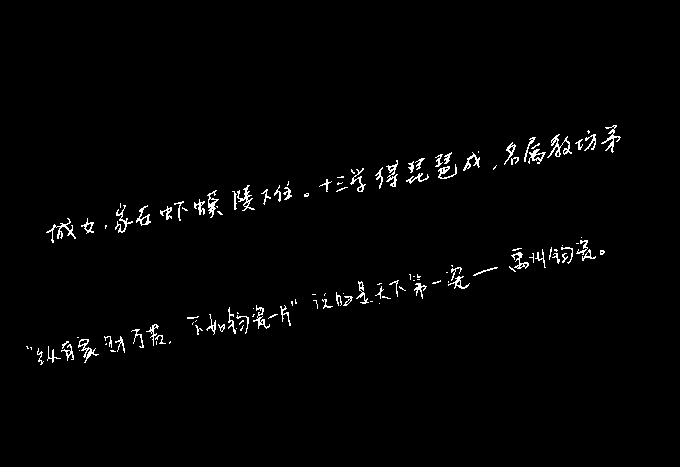 城女，家在虾蟆陵下住。十三学得琵琶成，名属教坊第
“纵有家财万贯，不如钧瓷一片”说的是天下第一瓷——禹州钧瓷。